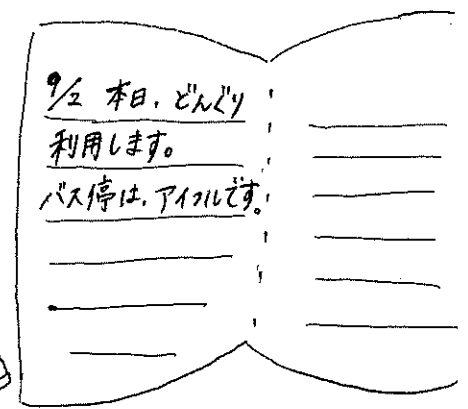 9/2 本日、どんぐり
利用します。
バス停は、アイフルです。